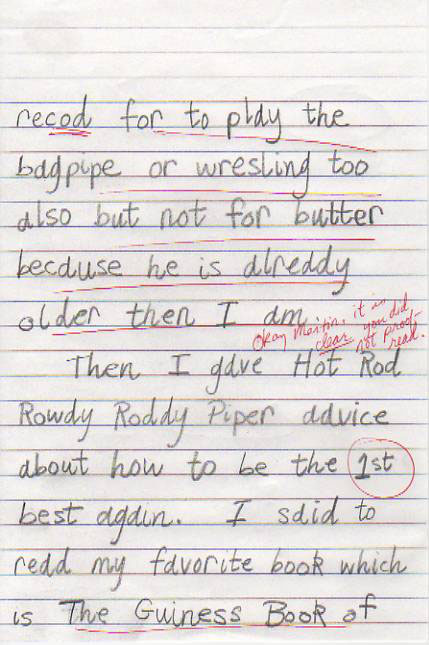 recod for to play the
bagpipe or wresling too
also but not for butter
because he is alreddy
older then I am.
Okay Martin, it is
clear you did
not proof-
read.
Then I gave Hot Rod
Rowdy Roddy Piper advice
about how to be the 1st
best again. I said to
read my favorite book which
is The Guiness Book of